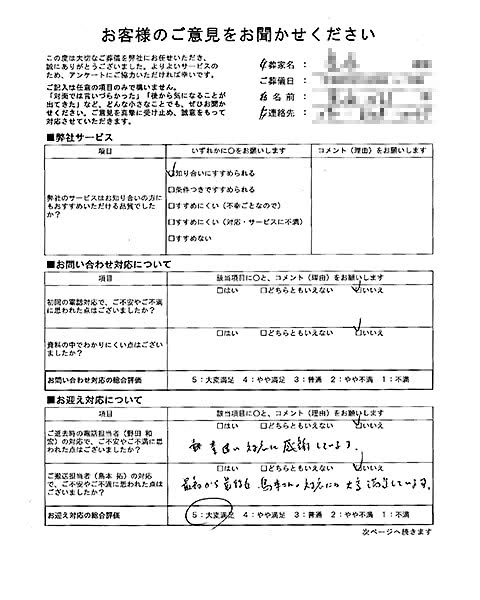 お客様のご意見をお聞かせください
この度は大切なご葬儀を弊社にお任せいただき、
誠にありがとうございました。よりよいサービスの
ため、アンケートにご協力いただければ幸いです。
ご記入は任意の項目のみで構いません。
「対面では言いづらかった」「後から気になることが
出てきた」など、どんな小さなことでも、ぜひお聞か
せください。ご意見を真摯に受け止め、誠意をもって
対応させていただきます。
葬家名:
ご葬儀日:
名前:
連絡先:
■弊社サービス
項目 いずれかに〇をお願いします コメント(理由)をお願いします
弊社のサービスはお知り合いの方に
もおすすめいただける品質でした
か?
□知り合いにすすめられる
□条件つきですすめられる
□すすめにくい(不幸ごとなので)
□すすめにくい(対応・サービスに不満)
□すすめない
■お問い合わせ対応について
項目 該当項目に〇と、コメント(理由)をお願いします
初回の電話対応で、ご不安やご不満
に思われた点はございましたか?
□はい □どちらともいえない □いいえ
資料の中でわかりにくい点はござい
ましたか?
□はい □どちらともいえない □いいえ
お問い合わせ対応の総合評価 5:大変満足 4:やや満足 3:普通 2:やや不満 1:不満
■お迎え対応について
項目 該当項目に〇と、コメント(理由)をお願いします
ご逝去時の電話担当者(野田 和
宏)の対応で、ご不安やご不満に思
われた点はございましたか?
□はい □どちらともいえない □いいえ
対応に感謝しています。
ご搬送担当者(鳥本 拓)の対応
で、ご不安やご不満に思われた点は
ございましたか?
□はい □どちらともいえない □いいえ
最初から最後まで 鳥本さんの対応には 大変満足しています。
お迎え対応の総合評価 5:大変満足 4:やや満足 3:普通 2:やや不満 1:不満
次ページへ続きます